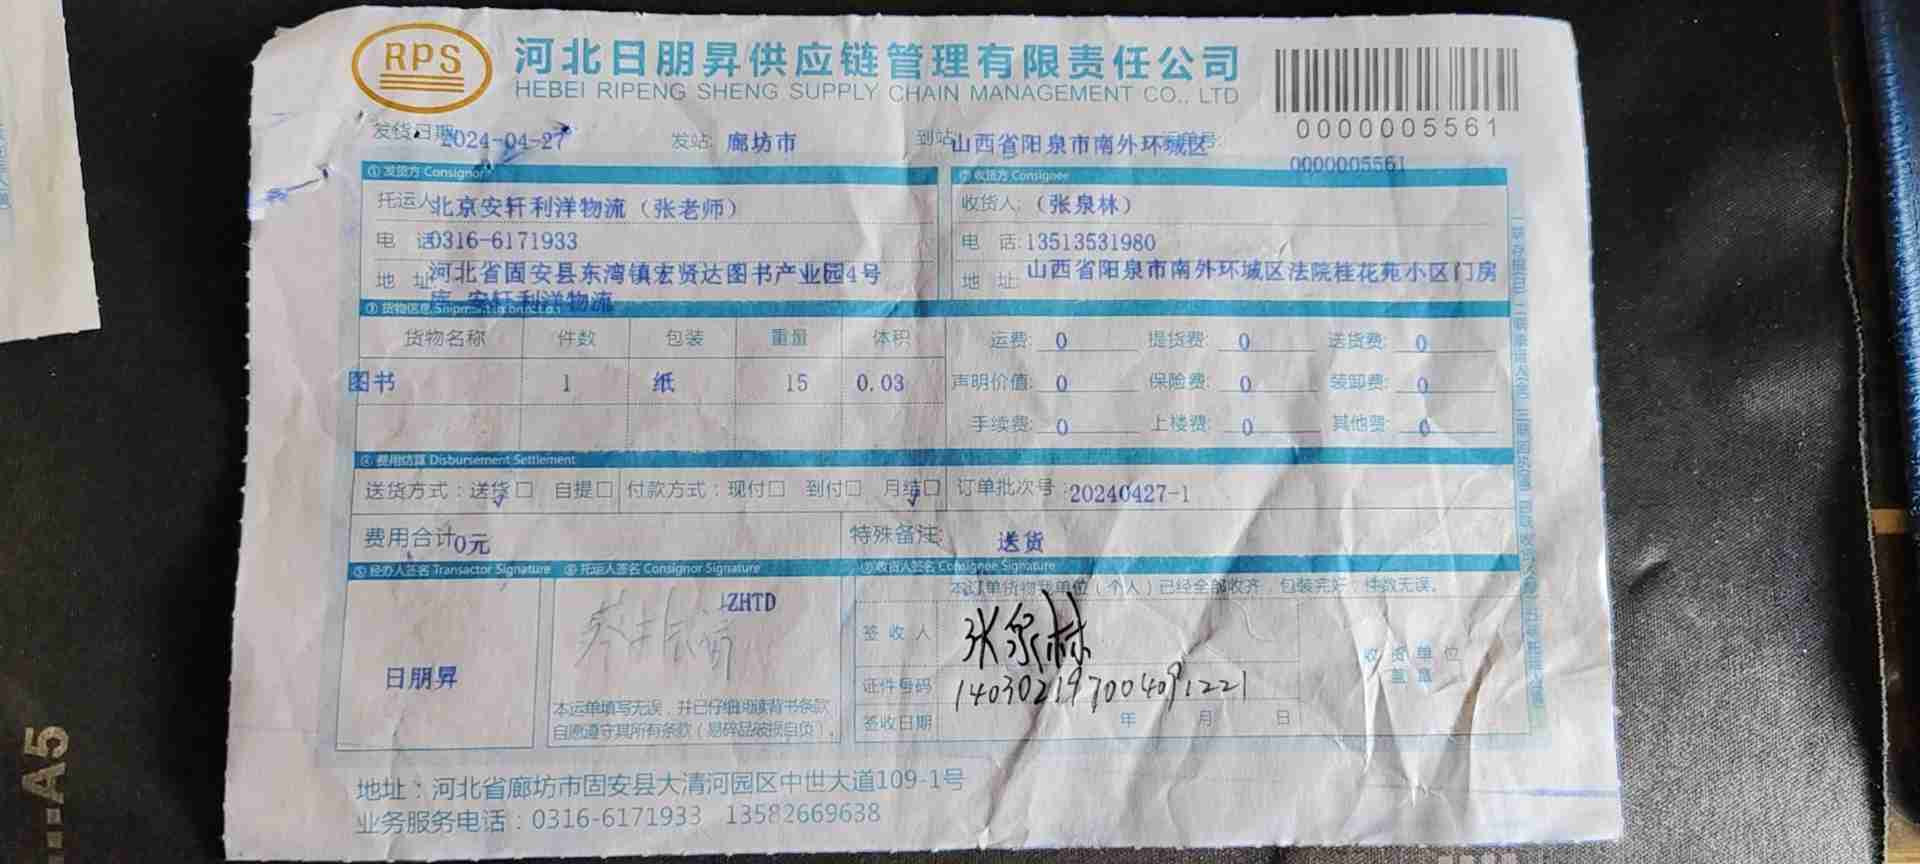 RPS 河北日朋昇供应链管理有限责任公司
HEBEI RIPENG SHENG SUPPLY CHAIN MANAGEMENT CO., LTD
0000005561
发货日期 2024-04-27 发站: 廊坊市 到站 山西省阳泉市南外环城区 单号:
0000005561
① 发货方 Consignor ② 收货方 Consignee
托运人 北京安轩利洋物流（张老师） 收货人: （张泉林）
电 话 0316-6171933 电 话: 13513531980
地 址 河北省固安县东湾镇宏贤达图书产业园4号 地 址: 山西省阳泉市南外环城区法院桂花苑小区门房
库-安轩利洋物流
③ 货物信息
货物名称 件数 包装 重量 体积 运费: 0 提货费: 0 送货费: 0
图书 1 纸 15 0.03 声明价值: 0 保险费: 0 装卸费: 0
手续费: 0 上楼费: 0 其他费: 0
④ 费用结算 Disbursement Settlement
送货方式：送货□ 自提□ 付款方式：现付□ 到付□ 月结□ 订单批次号 20240427-1
费用合计 0元 特殊备注: 送货
⑤ 经办人签名 Transactor Signature ⑥ 托运人签名 Consignor Signature ⑦ 收货人签名 Consignee Signature
本订单货物我单位（个人）已经全部收齐，包装完好，件数无误。
ZHTD
签 收 人 张泉林
日朋昇
收 货 单 位
盖 章
证件号码 140302197004091221
本运单填写无误，并已仔细阅读背书条款
自愿遵守其所有条款（易碎品破损自负）。
签收日期 年 月 日
地址：河北省廊坊市固安县大清河园区中世大道109-1号
业务服务电话：0316-6171933 13582669638
A5